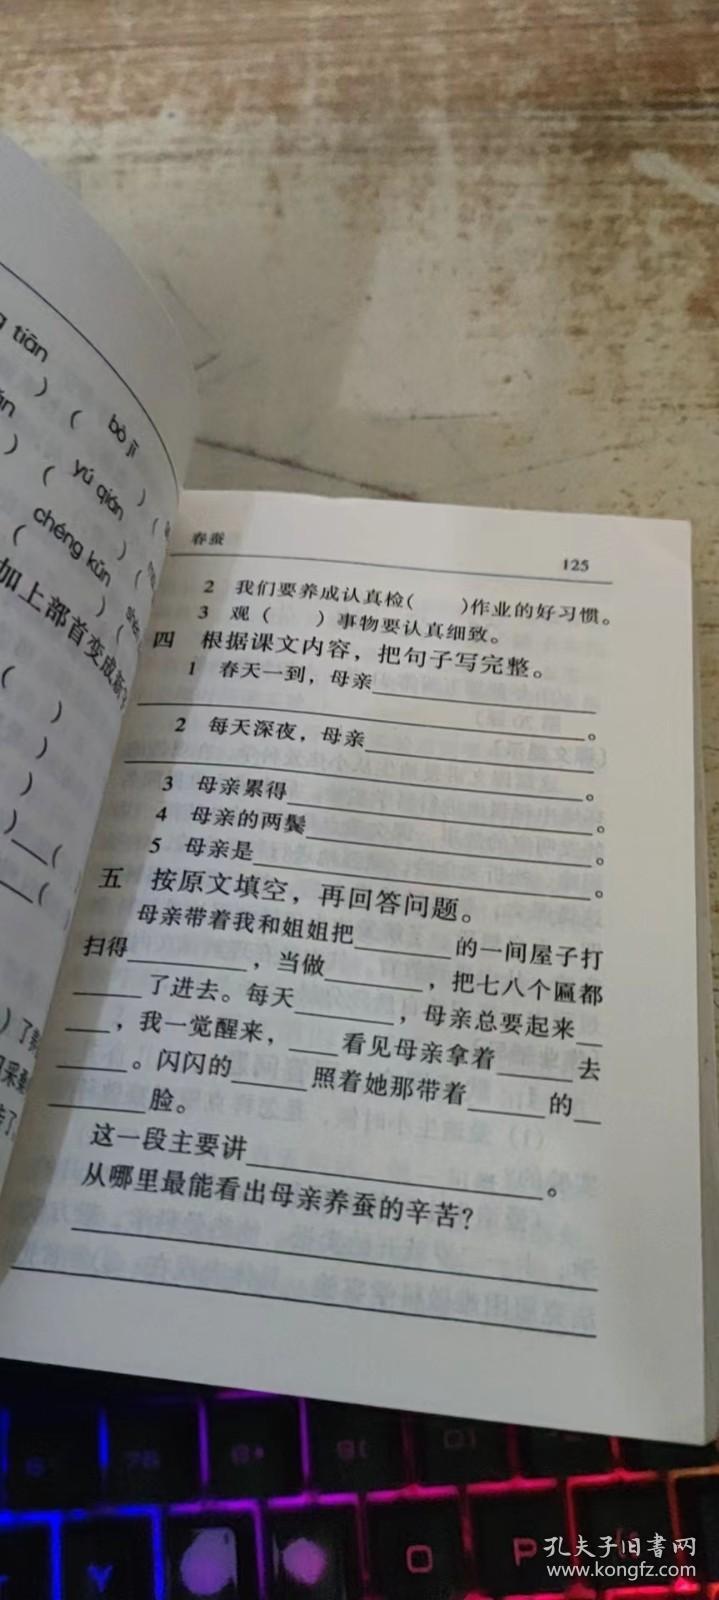 g tiān
) ( bō jī
yú qián
) (
chéng kūn
加上部首变成新字
( )
)
)
)__(
) 了
采桑
春蚕
125
2 我们要养成认真检( )作业的好习惯。
3 观( )事物要认真细致。
四 根据课文内容，把句子写完整。
1 春天一到，母亲________
________。
2 每天深夜，母亲________
________。
3 母亲累得________。
4 母亲的两鬓________。
5 母亲是________。
五 按原文填空，再回答问题。
母亲带着我和姐姐把______的一间屋子打
扫得______，当做______，把七八个匾都
____了进去。每天______，母亲总要起来__
___，我一觉醒来，___看见母亲拿着____去
____。闪闪的____照着她那带着____的__
____脸。
这一段主要讲________________。
从哪里最能看出母亲养蚕的辛苦？
________________
________________
O
P
孔夫子旧书网
www.kongfz.com